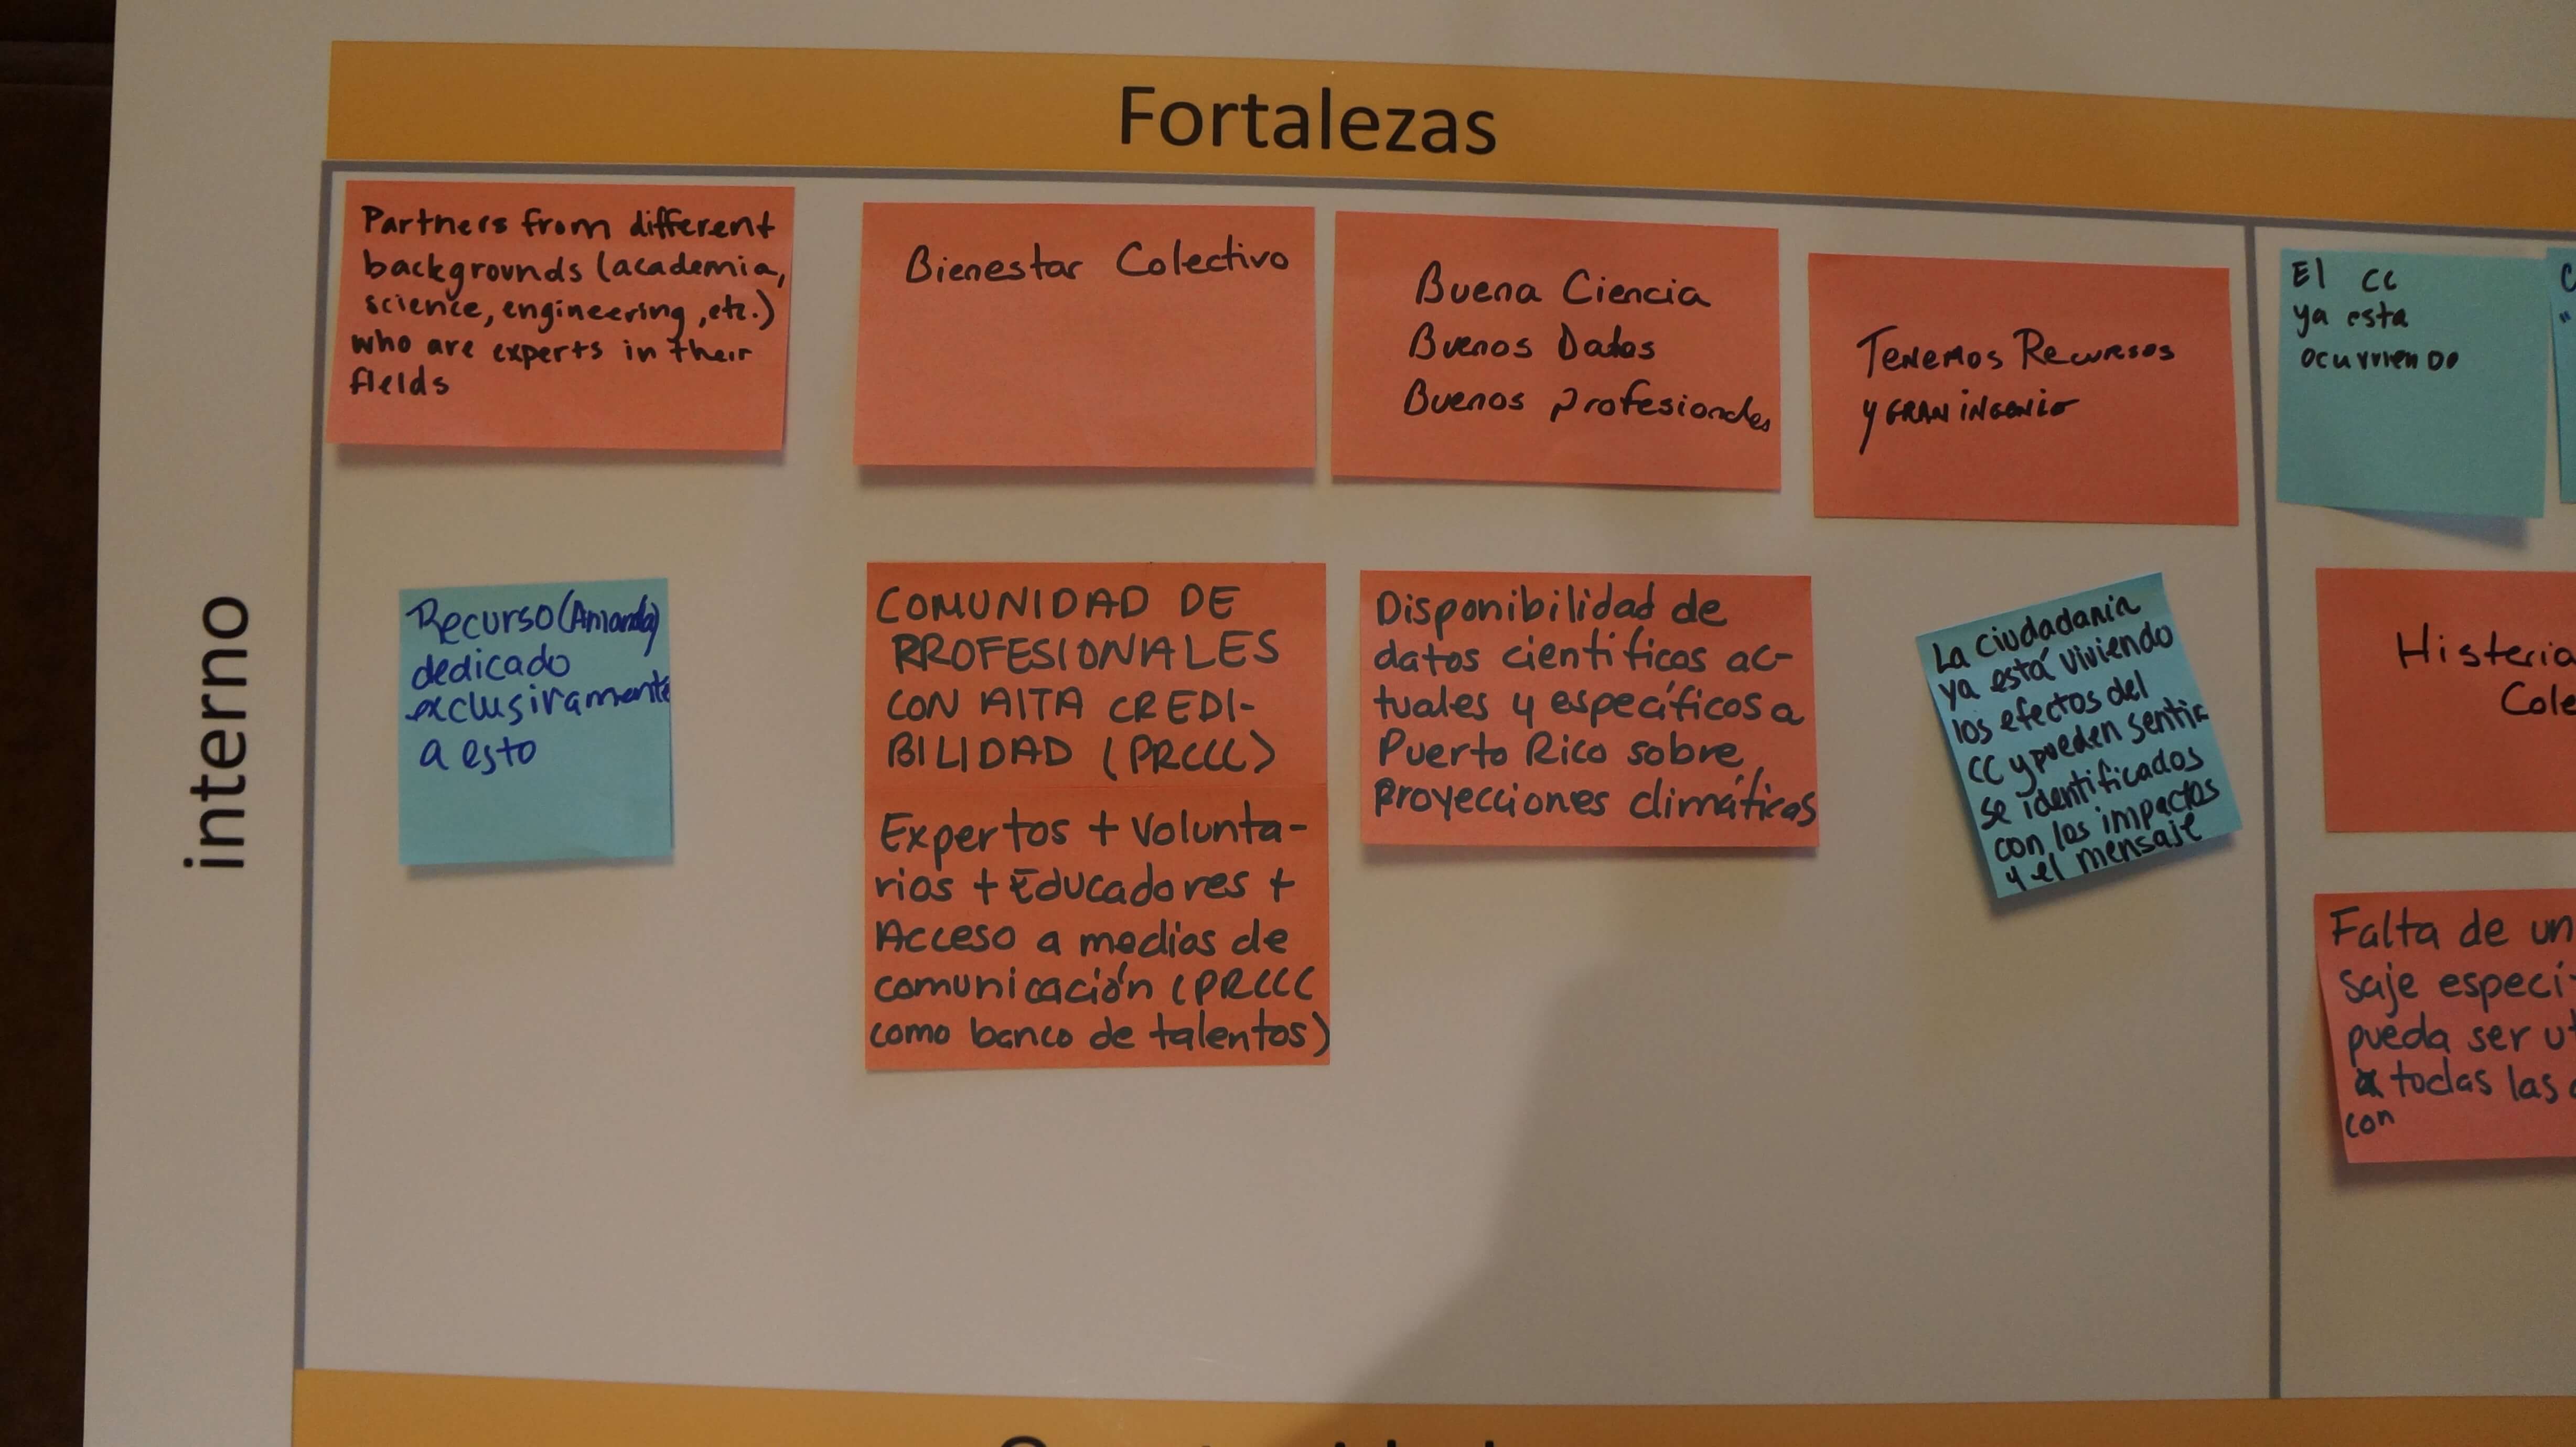 Fortalezas
interno
Partners from different
backgrounds (academia,
science, engineering, etc.)
who are experts in their
fields
Bienestar Colectivo
Buena Ciencia
Buenos Datos
Buenos profesionales
Tenemos Recursos
y GRAN iNGENio
El CC
ya esta
ocurriendo
Recurso (Amanda)
dedicado
exclusivamente
a esto
COMUNIDAD DE
PROFESIONALES
CON ALTA CREDI-
BILIDAD (PRCCC)
Expertos + Volunta-
rios + Educadores +
Acceso a medios de
comunicación (PRCCC
como banco de talentos)
Disponibilidad de
datos científicos ac-
tuales y específicos a
Puerto Rico sobre
Proyecciones climáticas
La Ciudadanía
ya está viviendo
los efectos del
CC y pueden sentir
se identificados
con los impactos
y el mensaje
Histeria
Cole
Falta de un
saje especí
pueda ser ut
todas las
con